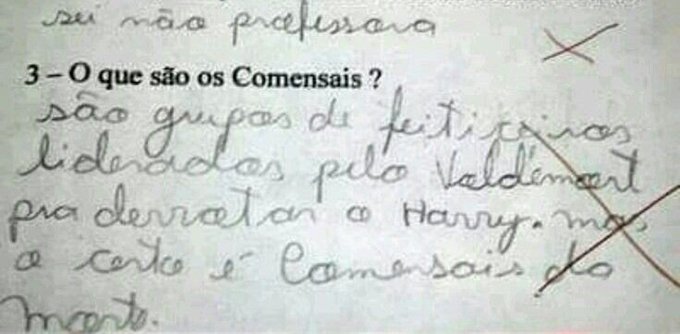 sei não professora
3 – O que são os Comensais ?
são grupos de feiticeiros
liderados pelo Valdemort
pra derrotar o Harry. mas
o certo é Comensais da
morte.